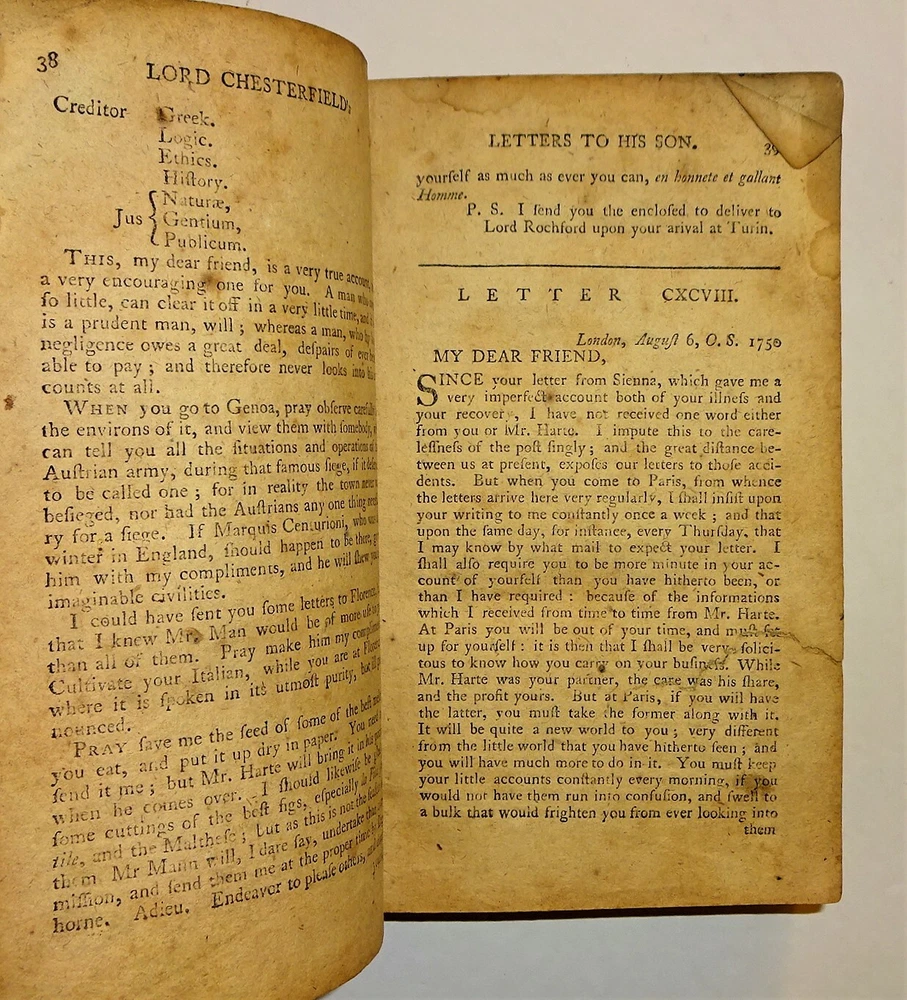 38
LORD CHESTERFIELD's
Creditor Greek.
Logic.
Ethics.
Hiſtory.
Jus { Naturæ,
Gentium,
Publicum.
THIS, my dear friend, is a very true account,
a very encouraging one for you. A man who
ſo little, can clear it off in a very little time, and
is a prudent man, will ; whereas a man, who by
negligence owes a great deal, deſpairs of ever
able to pay ; and therefore never looks into his
counts at all.
WHEN you go to Genoa, pray obſerve
the environs of it, and view them with ſomebody,
can tell you all the ſituations and operations of
Auſtrian army, during that famous ſiege, if it
to be called one ; for in reality the town never
beſieged, nor had the Auſtrians any one thing
ry for a ſiege. If Marquis Centurioni, who was
winter in England, ſhould happen to be there,
him with my compliments, and he will ſhew
imaginable civilities.
I could have ſent you ſome letters to Florence,
that I knew Mr. Man would be of more uſe to
than all of them. Pray make him my
Cultivate your Italian, while you are at
where it is ſpoken in its utmoſt purity, but
nounced.
PRAY ſave me the ſeed of ſome of the beſt
you eat, and put it up dry in paper. You need
ſend it me ; but Mr. Harte will bring it in his
when he comes over. I ſhould likewiſe be
ſome cuttings of the beſt figs, eſpecially
tile, and the Malteſe ; but as this is not the
them Mr Mann will, I dare ſay, undertake
miſſion, and ſend them me at the proper time
horne. Adieu. Endeavor to pleaſe others,
LETTERS TO HIS SON.
39
yourſelf as much as ever you can, en honnete et gallant
Homme.
P. S. I ſend you the encloſed to deliver to
Lord Rochford upon your arival at Turin.
LETTER CXCVIII.
London, Auguſt 6, O. S. 1750
MY DEAR FRIEND,
SINCE your letter from Sienna, which gave me a
very imperfect account both of your illneſs and
your recovery, I have not received one word either
from you or Mr. Harte. I impute this to the care-
leſſneſs of the poſt ſingly ; and the great diſtance be-
tween us at preſent, expoſes our letters to thoſe acci-
dents. But when you come to Paris, from whence
the letters arrive here very regularly, I ſhall inſiſt upon
your writing to me conſtantly once a week ; and that
upon the ſame day, for inſtance, every Thurſday, that
I may know by what mail to expect your letter. I
ſhall alſo require you to be more minute in your ac-
count of yourſelf than you have hitherto been, or
than I have required : becauſe of the informations
which I received from time to time from Mr. Harte.
At Paris you will be out of your time, and muſt ſet
up for yourſelf : it is then that I ſhall be very ſolici-
tous to know how you carry on your buſineſs. While
Mr. Harte was your partner, the care was his ſhare,
and the profit yours. But at Paris, if you will have
the latter, you muſt take the former along with it.
It will be quite a new world to you ; very different
from the little world that you have hitherto ſeen ; and
you will have much more to do in it. You muſt keep
your little accounts conſtantly every morning, if you
would not have them run into confuſion, and ſwell to
a bulk that would frighten you from ever looking into
them